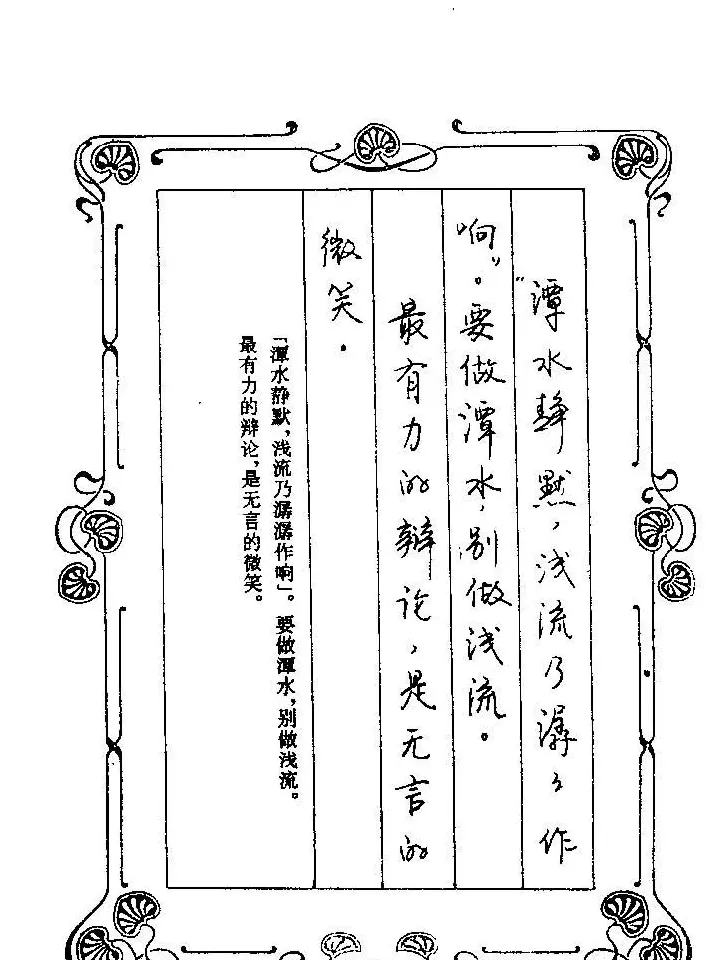 “潭水静默，浅流乃潺々作
响”。要做潭水，别做浅流。
最有力的辩论，是无言的
微笑．
「潭水静默，浅流乃潺潺作响」。要做潭水，别做浅流。
最有力的辩论，是无言的微笑。